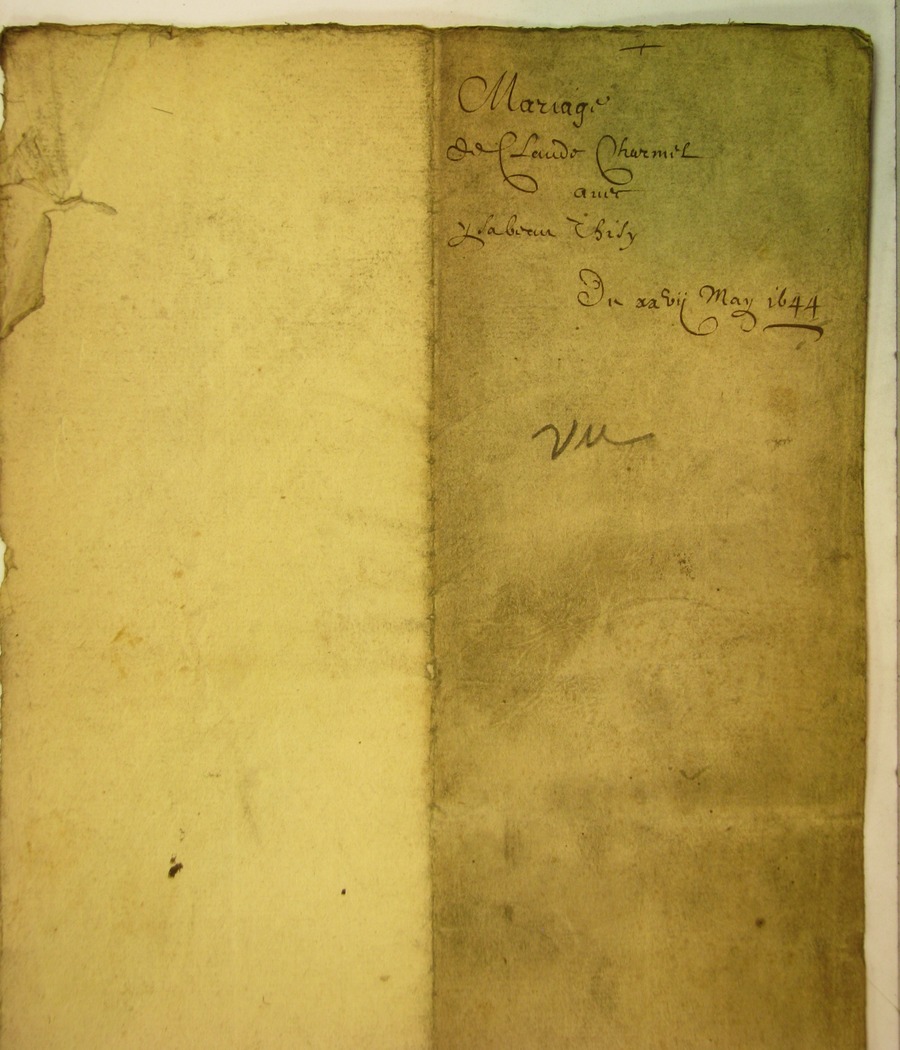 Mariage
de Claude Charmel
avec
ysabeau Thisy
Du xxvij May 1644
vu